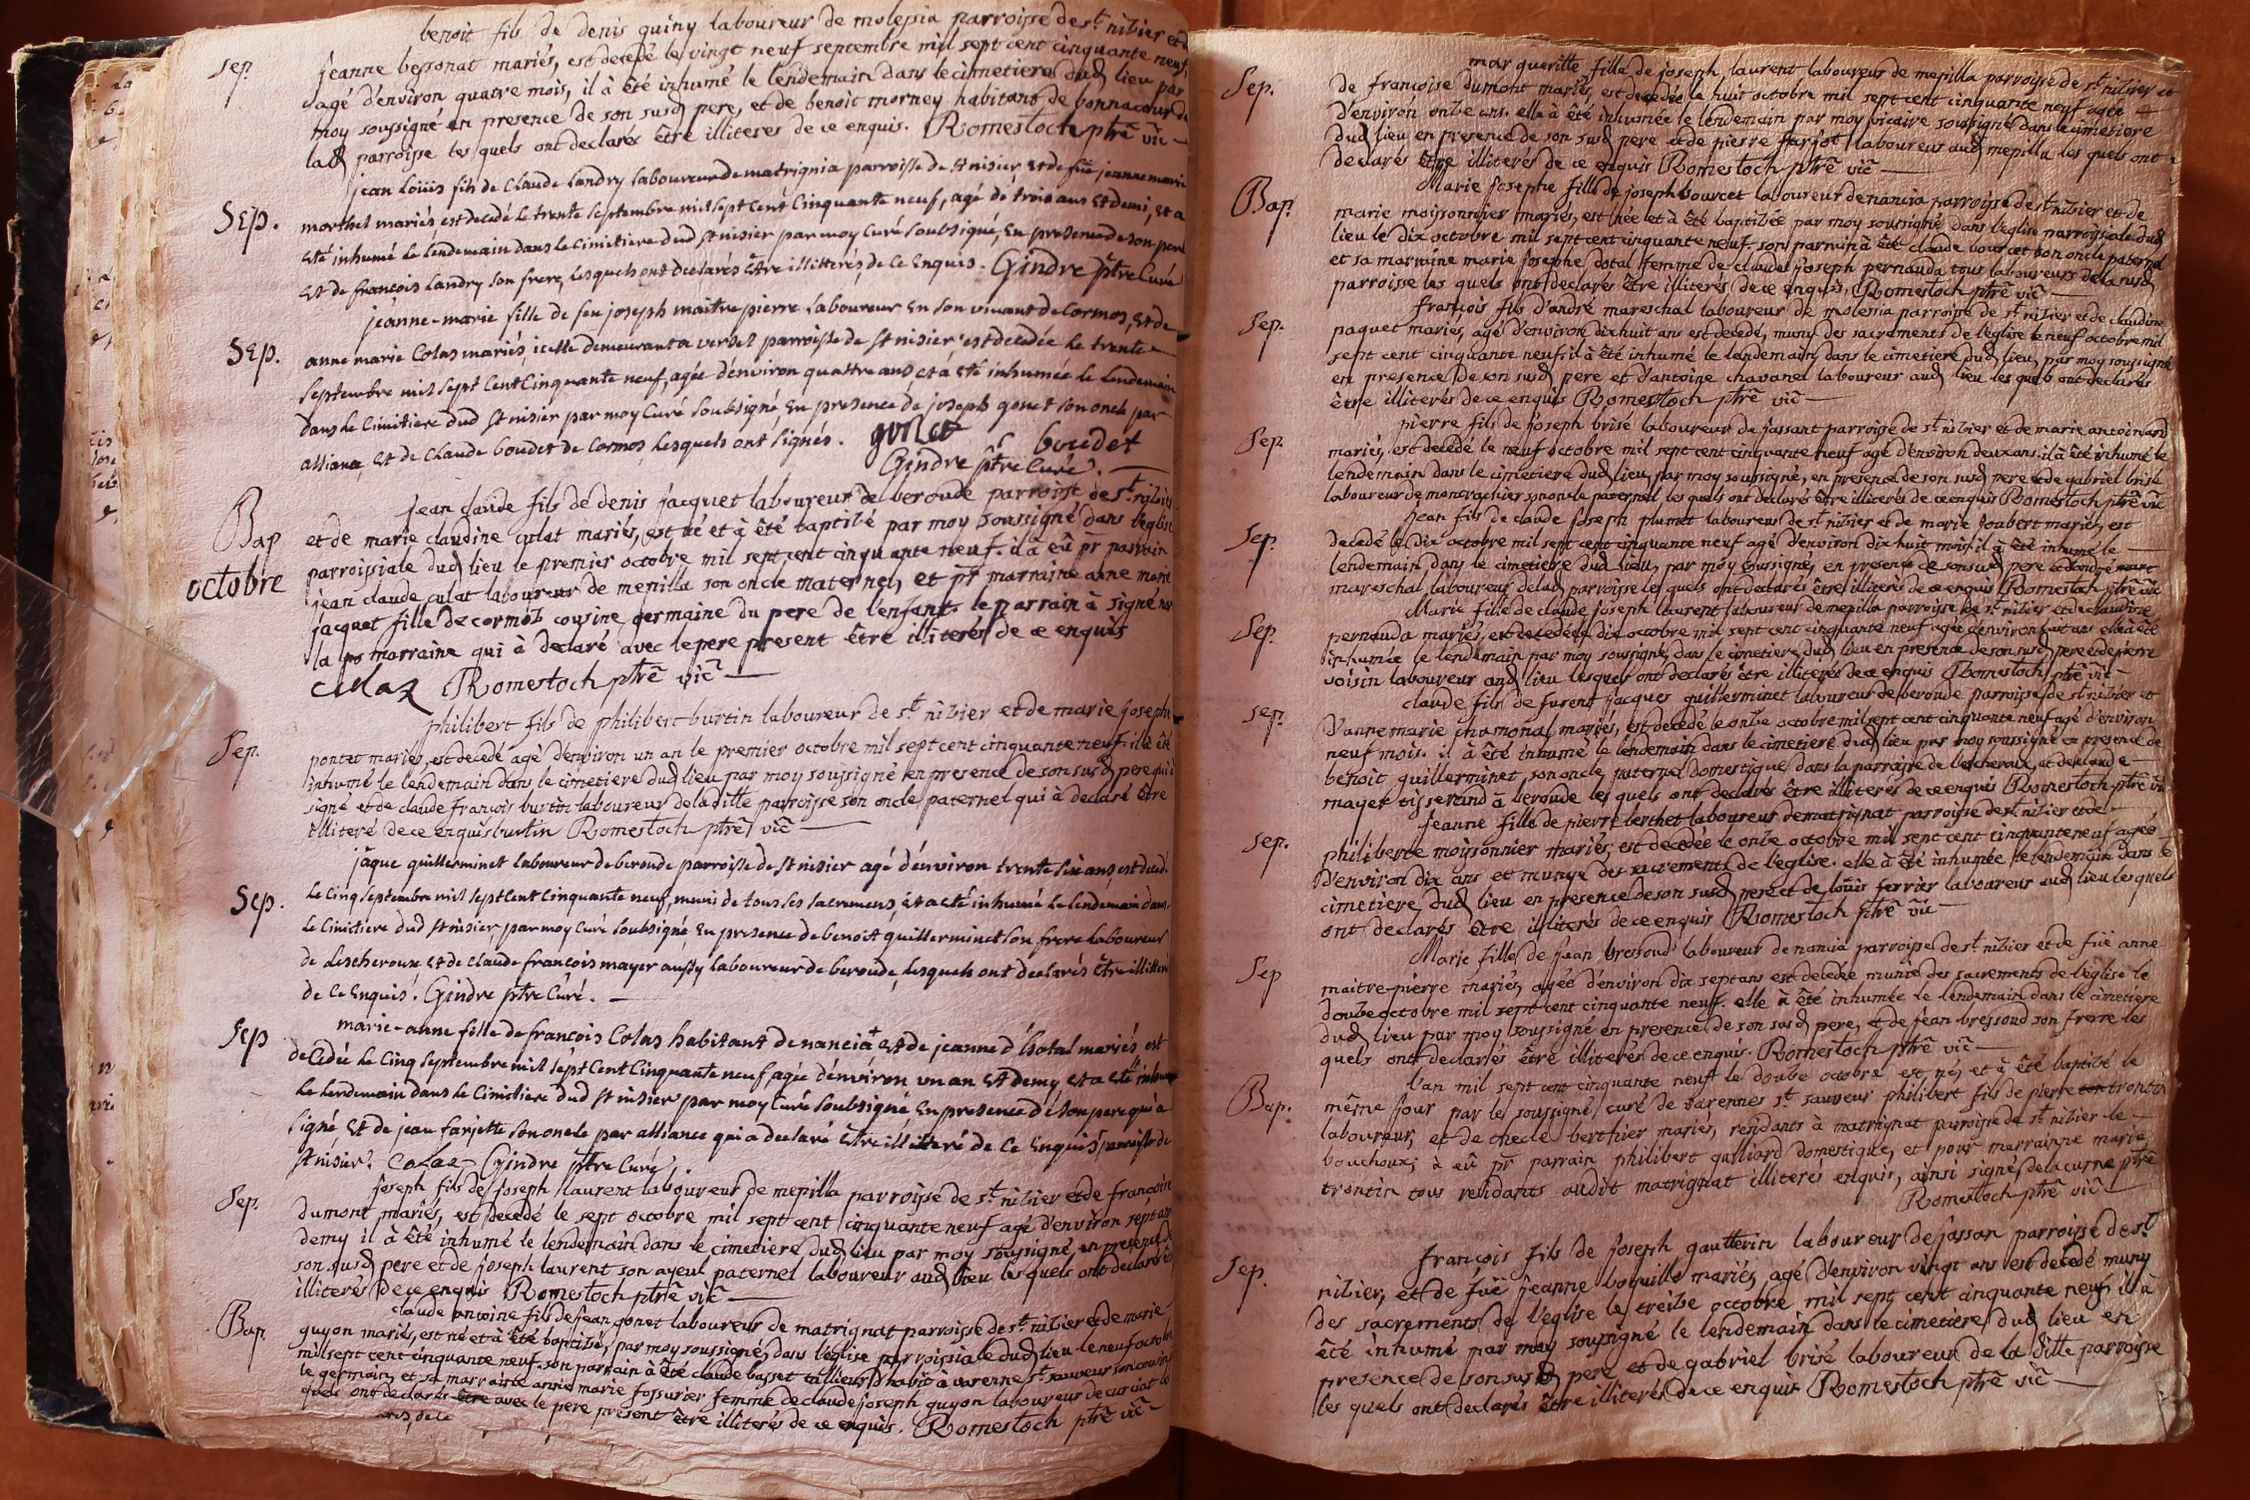 benoit fils de denis quiny laboureur de molepia parroisse de st nibier et de
Sep. jeanne bessonat mariés, est decedé le vingt neuf septembre mil sept cent cinquante neuf,
agé d'environ quatre mois, il à été inhumé le lendemain dans le cimetiere dud lieu par
moy soussigné en presence de son susd pere, et de benoit morney habitant de bonnacour de
lad parroisse les quels ont declarés être illiteres de ce enquis. Romestoch ptre vic
jean loüis fils de Claude landry laboureur de matrignia parroisse de st nisier et de fue jeanne marie
Sep. morthel mariés est decedé le trente septembre mil sept cent cinquante neuf, agé de trois ans et demi, et a
eté inhumé le lendemain dans le cimitiere dud st nisier par moy curé soubsigné, en presence de son pere
et de francois landry son frere, lesquels ont declarés être illitterés, de ce enquis. Gindre ptre curé
jeanne-marie fille de feu joseph maitre pierre laboureur en son vivant de cormos, et de
Sep. anne marie Colas mariés, icelle demeurant a versel parroisse de st nisier est decedée le trente
septembre mil sept cent cinquante neuf, agée d'environ quattre ans, et a eté inhumée le lendemain
dans le cimitiere dud st nisier par moy curé soubsigné en presence de joseph gonet son oncle par
alliance, et de Claude boudet de cormos lesquels ont signés. gonet boudet
Gindre ptre curé.
jean claude fils de denis jacquet laboureur de beroude parroisse de st nibier
Bap et de marie claudine culat mariés, est né et à été baptibé par moy soussigné dans l'eglise
octobre parroissiale dud lieu le premier octobre mil sept cent cinquante neuf. il à eû pr parrain
jean claude culat laboureur de mepilla son oncle maternel, et pr marraine anne marie
jacquet fille de cormoz cousine germaine du pere de l'enfant. le parrain à signé non
la marraine qui à declaré avec le pere present être illiterés de ce enquis
culaz Romestoch ptre vic
philibert fils de philibert burtin laboureur de st nibier et de marie josephe
Sep. pontet mariés, est decedé agé d'environ un an le premier octobre mil sept cent cinquante neuf. il à été
inhumé le lendemain dans le cimetiere dud lieu par moy soussigné en presence de son susd pere qui à
signé et de claude françois burtin laboureur de laditte parroisse son oncle paternel qui à declaré être
illiteré de ce enquis burtin Romestoch ptre vic
jâque guilleminet laboureur de beroude parroisse de st nisier agé d'énviron trente six ans, est decedé
Sep. le cinq septembre mil sept cent cinquante neuf, muni de tous les sacremens, et a eté inhumé le lendemain dans
le cimitiere dud st nisier, par moy curé soubsigné en presence de benoit guillerminet son frere laboureur
de lescheroux et de claude francois mayer aussy laboureur de beroude, lesquels ont declarés être illitteré
de ce enquis. Gindre ptre curé.
marie-anne fille de francois Colas habitant de nancia et de jeanne d'hotal mariés est
Sep decedée le cinq septembre mil sept cent cinquante neuf, agée d'énviron un an et demy et a eté inhumé
le lendemain dans le cimitiere dud st nisier par moy curé soubsigné en presence dé son pere qui a
signé, et de jean farjette son oncle par alliance qui a declaré être illitteré de ce enquis parroisse de
st nisier. colas Gindre ptre curé.
joseph fils de joseph laurent laboureur de mepilla parroisse de st nibier et de françoise
Sep. dumont mariés, est decedé le sept octobre mil sept cent cinquante neuf agé d'environ sept ans
demy il à été inhumé le lendemain dans le cimetiere dud lieu par moy soussigné, en presence de
son susd pere et de joseph laurent son ayeul paternel laboureur aud lieu lesquels ont declaré être
illiterés de ce enquis Romestoch ptre vic
claude antoine fils de jean gonet laboureur de matrignat parroisse de st nibier et de marie
Bap. guyon mariés, est né et à été baptibé, par moy soussigné, dans l'eglise parroissiale dud lieu le neuf octobre
mil sept cent cinquante neuf. son parrain à été claude basset tailleur d'habit à varenne st sauveur son cousin
le germain, et sa marraine annie marie fossurier femme de claude joseph guyon laboureur de curciat les
quels ont declarés être avec le pere present être illiterés de ce enquis. Romestoch ptre vic
margueritte fille de joseph laurent laboureur de mepilla parroisse de st nibier et
Sep. de françoise dumont mariés, est decedée le huit octobre mil sept cent cinquante neuf agée
d'environ onbe ans. elle à été inhumée le lendemain par moy vicaire soussigné dans le cimetiere
dud lieu en presence de son susd pere et de pierre farjot laboureur aud mepilla les quels ont
declarés être illiterés de ce enquis Romestoch ptre vic
Marie josephe fille de joseph bourcet laboureur de nancia parroisse de st nibier et de
Bap. marie moissonnier mariés, est née et à été baptibée par moy soussigné dans l'eglise parroissiale dud
lieu le dix octobre mil sept cent cinquante neuf. son parrain à été claude bourcet son oncle paternel
et sa marraine marie josephe dotal femme de claude joseph pernauda tous laboureurs de la susd
parroisse les quels ont declarés être illiterés de ce enquis, Romestoch ptre vic
françois fils d'andré mareschal laboureur de molesia parroisse de st nibier et de claudine
Sep. paquet mariés, agé d'environ dix huit ans est decedé, muny des sacrements de l'eglise le neuf octobre mil
sept cent cinquante neuf il à été inhumé le lendemain, dans le cimetiere dud lieu, par moy soussigné
en presence de son susd pere et d'antoine chavanel laboureur aud lieu les quels ont declarés
être illiterés de ce enquis Romestoch ptre vic
pierre fils de joseph brisé laboureur de jassant parroisse de st nibier et de marie antoinard
Sep. mariés, est decedé le neuf octobre mil sept cent cinquante neuf agé d'environ deux ans. il à été inhumé le
lendemain dans le cimetiere dud lieu, par moy soussigné, en presence de son susd pere et de gabriel brisé
laboureur de montrachier son oncle paternel les quels ont declarés être illiterés de ce enquis Romestoch ptre vic
jean fils de claude joseph plumet laboureur de st nibier et de marie joubert mariés, est
Sep. decedé le dix octobre mil sept cent cinquante neuf agé d'environ dix huit mois il à été inhumé le
lendemain dans le cimetiere dud lieu, par moy soussigné, en presence de son susd pere et d'andré
mareschal laboureur de lad parroisse les quels ont declarés être illiterés de ce enquis Romestoch ptre vic
Marie fille de claude joseph laurent laboureur de mepilla parroisse de st nibier et de claudine
Sep. pernauda mariés, est decedée le dix octobre mil sept cent cinquante neuf agée d'environ huit ans elle à été
inhumée le lendemain par moy soussigné, dans le cimetiere dud lieu en presence de son susd pere et de pierre
voisin laboureur aud lieu lesquels ont declarés être illiterés de ce enquis Romestoch ptre vic
claude fils de furent jacques guillerminet laboureur de beroude parroisse de st nibier et
Sep. d'anne marie chamonal mariés, est decedé le onbe octobre mil sept cent cinquante neuf agé d'environ
neuf mois. il à été inhumé le lendemain dans le cimetiere dud lieu par moy soussigné en presence de
benoit guillerminet, son oncle paternel domestique dans la parroisse de l'escheroux, et de claude
mayer tisserand à beroude les quels ont declarés être illiterés de ce enquis Romestoch ptre vic
jeanne fille de pierre berthet laboureur de matrignat parroisse de st nibier et de
Sep. philiberte moissonnier mariés, est decedée le onbe octobre mil sept cent cinquante neuf agée
d'environ dix ans et munye des sacrements de l'eglise. elle à été inhumée le lendemain dans le
cimetiere dud lieu en presence de son susd pere et de loüis ferrier laboureur aud lieu les quels
ont declarés être illiterés de ce enquis Romestoch ptre vic
Marie fille de jean bressoud laboureur de nancia parroisse de st nibier et de füe anne
Sep maitre-pierre mariés, agée d'environ dix sept ans est decedée munie des sacrements de l'eglise le
doube octobre mil sept cent cinquante neuf. elle à été inhumée le lendemain dans le cimetiere
dud lieu par moy soussigné en presence de son susd pere, et de jean bressoud son frerre les
quels ont declarés être illiterés de ce enquis. Romestoch ptre vic
l'an mil sept cent cinquante neuf le doube octobre est né, et à été baptibé le
Bap. même jour par le soussigné curé de varennes st sauveur philibert fils de pierre trontin
laboureur, et de checle berthier mariés, rendants à matrignat parroisse de st nibier-le-
bouchoux; à eû pr parrain philibert galliard domestique, et pour marrainne marie
trontin tous residants audit matrignat illiterés enquis, ainsi signé, delacurne ptre
Romestoch ptre vic
françois fils de joseph gautterin laboureur de jassan parroisse de st
Sep. nibier, et de füe jeanne boquillo mariés, agé d'environ vingt ans est decedé muny
des sacrements de l'eglise le treibe octobre mil sept cent cinquante neuf il à
été inhumé par moy soussigné le lendemain dans le cimetiere dud lieu en
presence de son susd pere et de gabriel brisé laboureur de la ditte parroisse
les quels ont declarés être illiterés de ce enquis Romestoch ptre vic